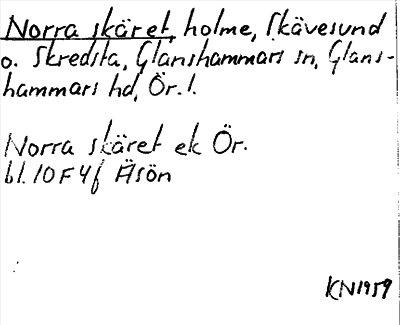 Norra skäret, holme, Skävesund
o. Skredsta, Glanshammars sn, Glans-
hammars hd, Ör. l.
Norra skäret ek Ör.
bl. 10 F 4 f Äsön
KN 1959